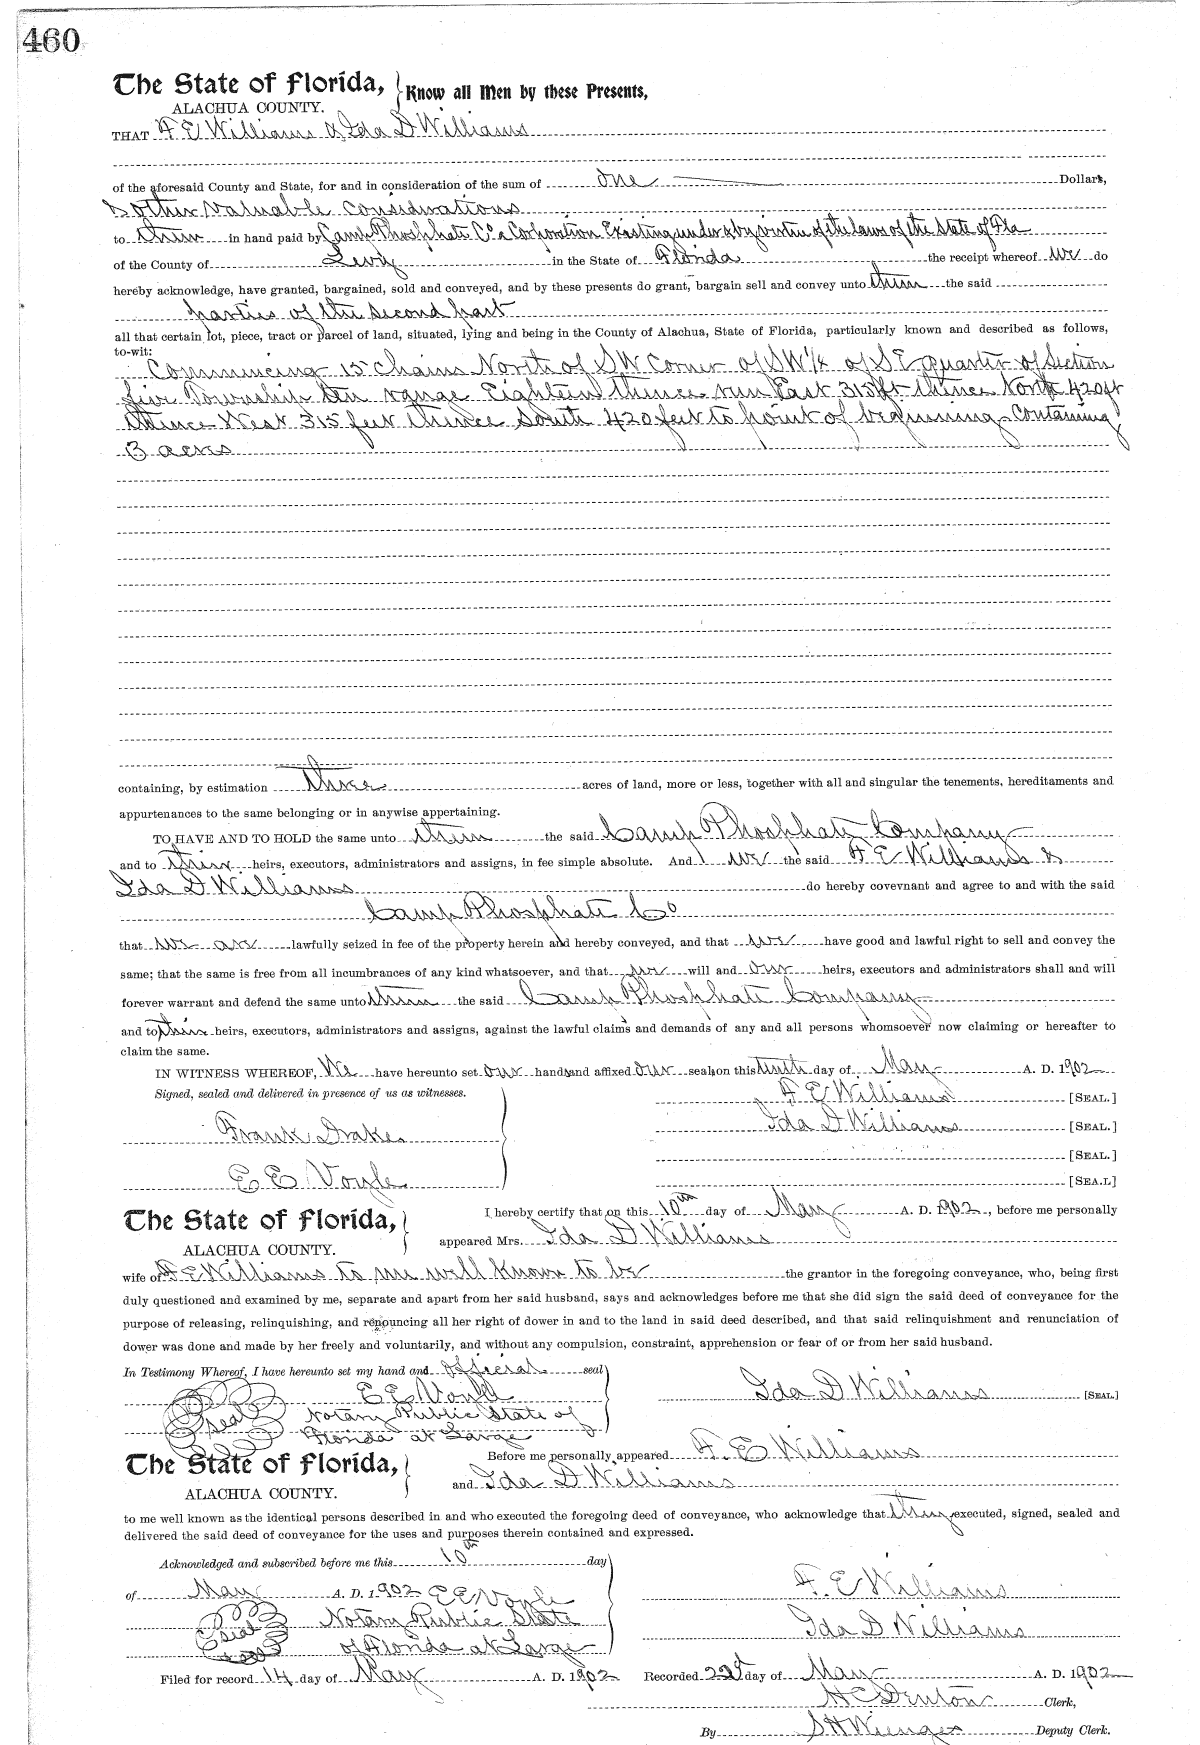 460
The State of Florida, Know all Men by these Presents,
ALACHUA COUNTY.
THAT F E Williams & Ida D Williams
of the aforesaid County and State, for and in consideration of the sum of one Dollars,
& other valuable considerations
to them in hand paid by Camp Phosphate Co a Corporation Existing under & by virtue of the laws of the State of Fla
of the County of Levy in the State of Florida the receipt whereof we do
hereby acknowledge, have granted, bargained, sold and conveyed, and by these presents do grant, bargain sell and convey unto them the said
parties of the second part
all that certain lot, piece, tract or parcel of land, situated, lying and being in the County of Alachua, State of Florida, particularly known and described as follows,
to-wit:
Commencing 15 chains North of SW Corner of SW 1/4 of S E quarter of Section
five Township ten range Eighteen thence run East 315 ft thence North 420 ft
thence West 315 feet thence South 420 feet to point of beginning Containing
3 acres
containing, by estimation three acres of land, more or less, together with all and singular the tenements, hereditaments and
appurtenances to the same belonging or in anywise appertaining.
TO HAVE AND TO HOLD the same unto them the said Camp Phosphate Company
and to their heirs, executors, administrators and assigns, in fee simple absolute. And we the said F E Williams &
Ida D Williams do hereby covevnant and agree to and with the said
Camp Phosphate Co
that we are lawfully seized in fee of the property herein and hereby conveyed, and that we have good and lawful right to sell and convey the
same; that the same is free from all incumbrances of any kind whatsoever, and that we will and our heirs, executors and administrators shall and will
forever warrant and defend the same unto them the said Camp Phosphate Company
and to their heirs, executors, administrators and assigns, against the lawful claims and demands of any and all persons whomsoever now claiming or hereafter to
claim the same.
IN WITNESS WHEREOF, We have hereunto set our hands and affixed our seals on this tenth day of May A. D. 1902
Signed, sealed and delivered in presence of us as witnesses. F E Williams [SEAL.]
Frank Drake Ida D Williams [SEAL.]
[SEAL.]
E E Voyle [SEA.L]
The State of Florida, I hereby certify that on this 10th day of May A. D. 1902, before me personally
ALACHUA COUNTY. appeared Mrs. Ida D Williams
wife of F E Williams to me well known to be the grantor in the foregoing conveyance, who, being first
duly questioned and examined by me, separate and apart from her said husband, says and acknowledges before me that she did sign the said deed of conveyance for the
purpose of releasing, relinquishing, and renouncing all her right of dower in and to the land in said deed described, and that said relinquishment and renunciation of
dower was done and made by her freely and voluntarily, and without any compulsion, constraint, apprehension or fear of or from her said husband.
In Testimony Whereof, I have hereunto set my hand and official seal
E E Voyle Ida D Williams [SEAL.]
Seal Notary Public State of
Florida at Large
The State of Florida, Before me personally appeared F. E Williams
ALACHUA COUNTY. and Ida D Williams
to me well known as the identical persons described in and who executed the foregoing deed of conveyance, who acknowledge that they executed, signed, sealed and
delivered the said deed of conveyance for the uses and purposes therein contained and expressed.
Acknowledged and subscribed before me this 10th day
of May A. D. 1902 E E Voyle F. E Williams
Seal Notary Public State Ida D Williams
of Florida at Large
Filed for record 14 day of May A. D. 1902 Recorded 22d day of May A. D. 1902
H C Denton Clerk,
By S H Wienges Deputy Clerk.